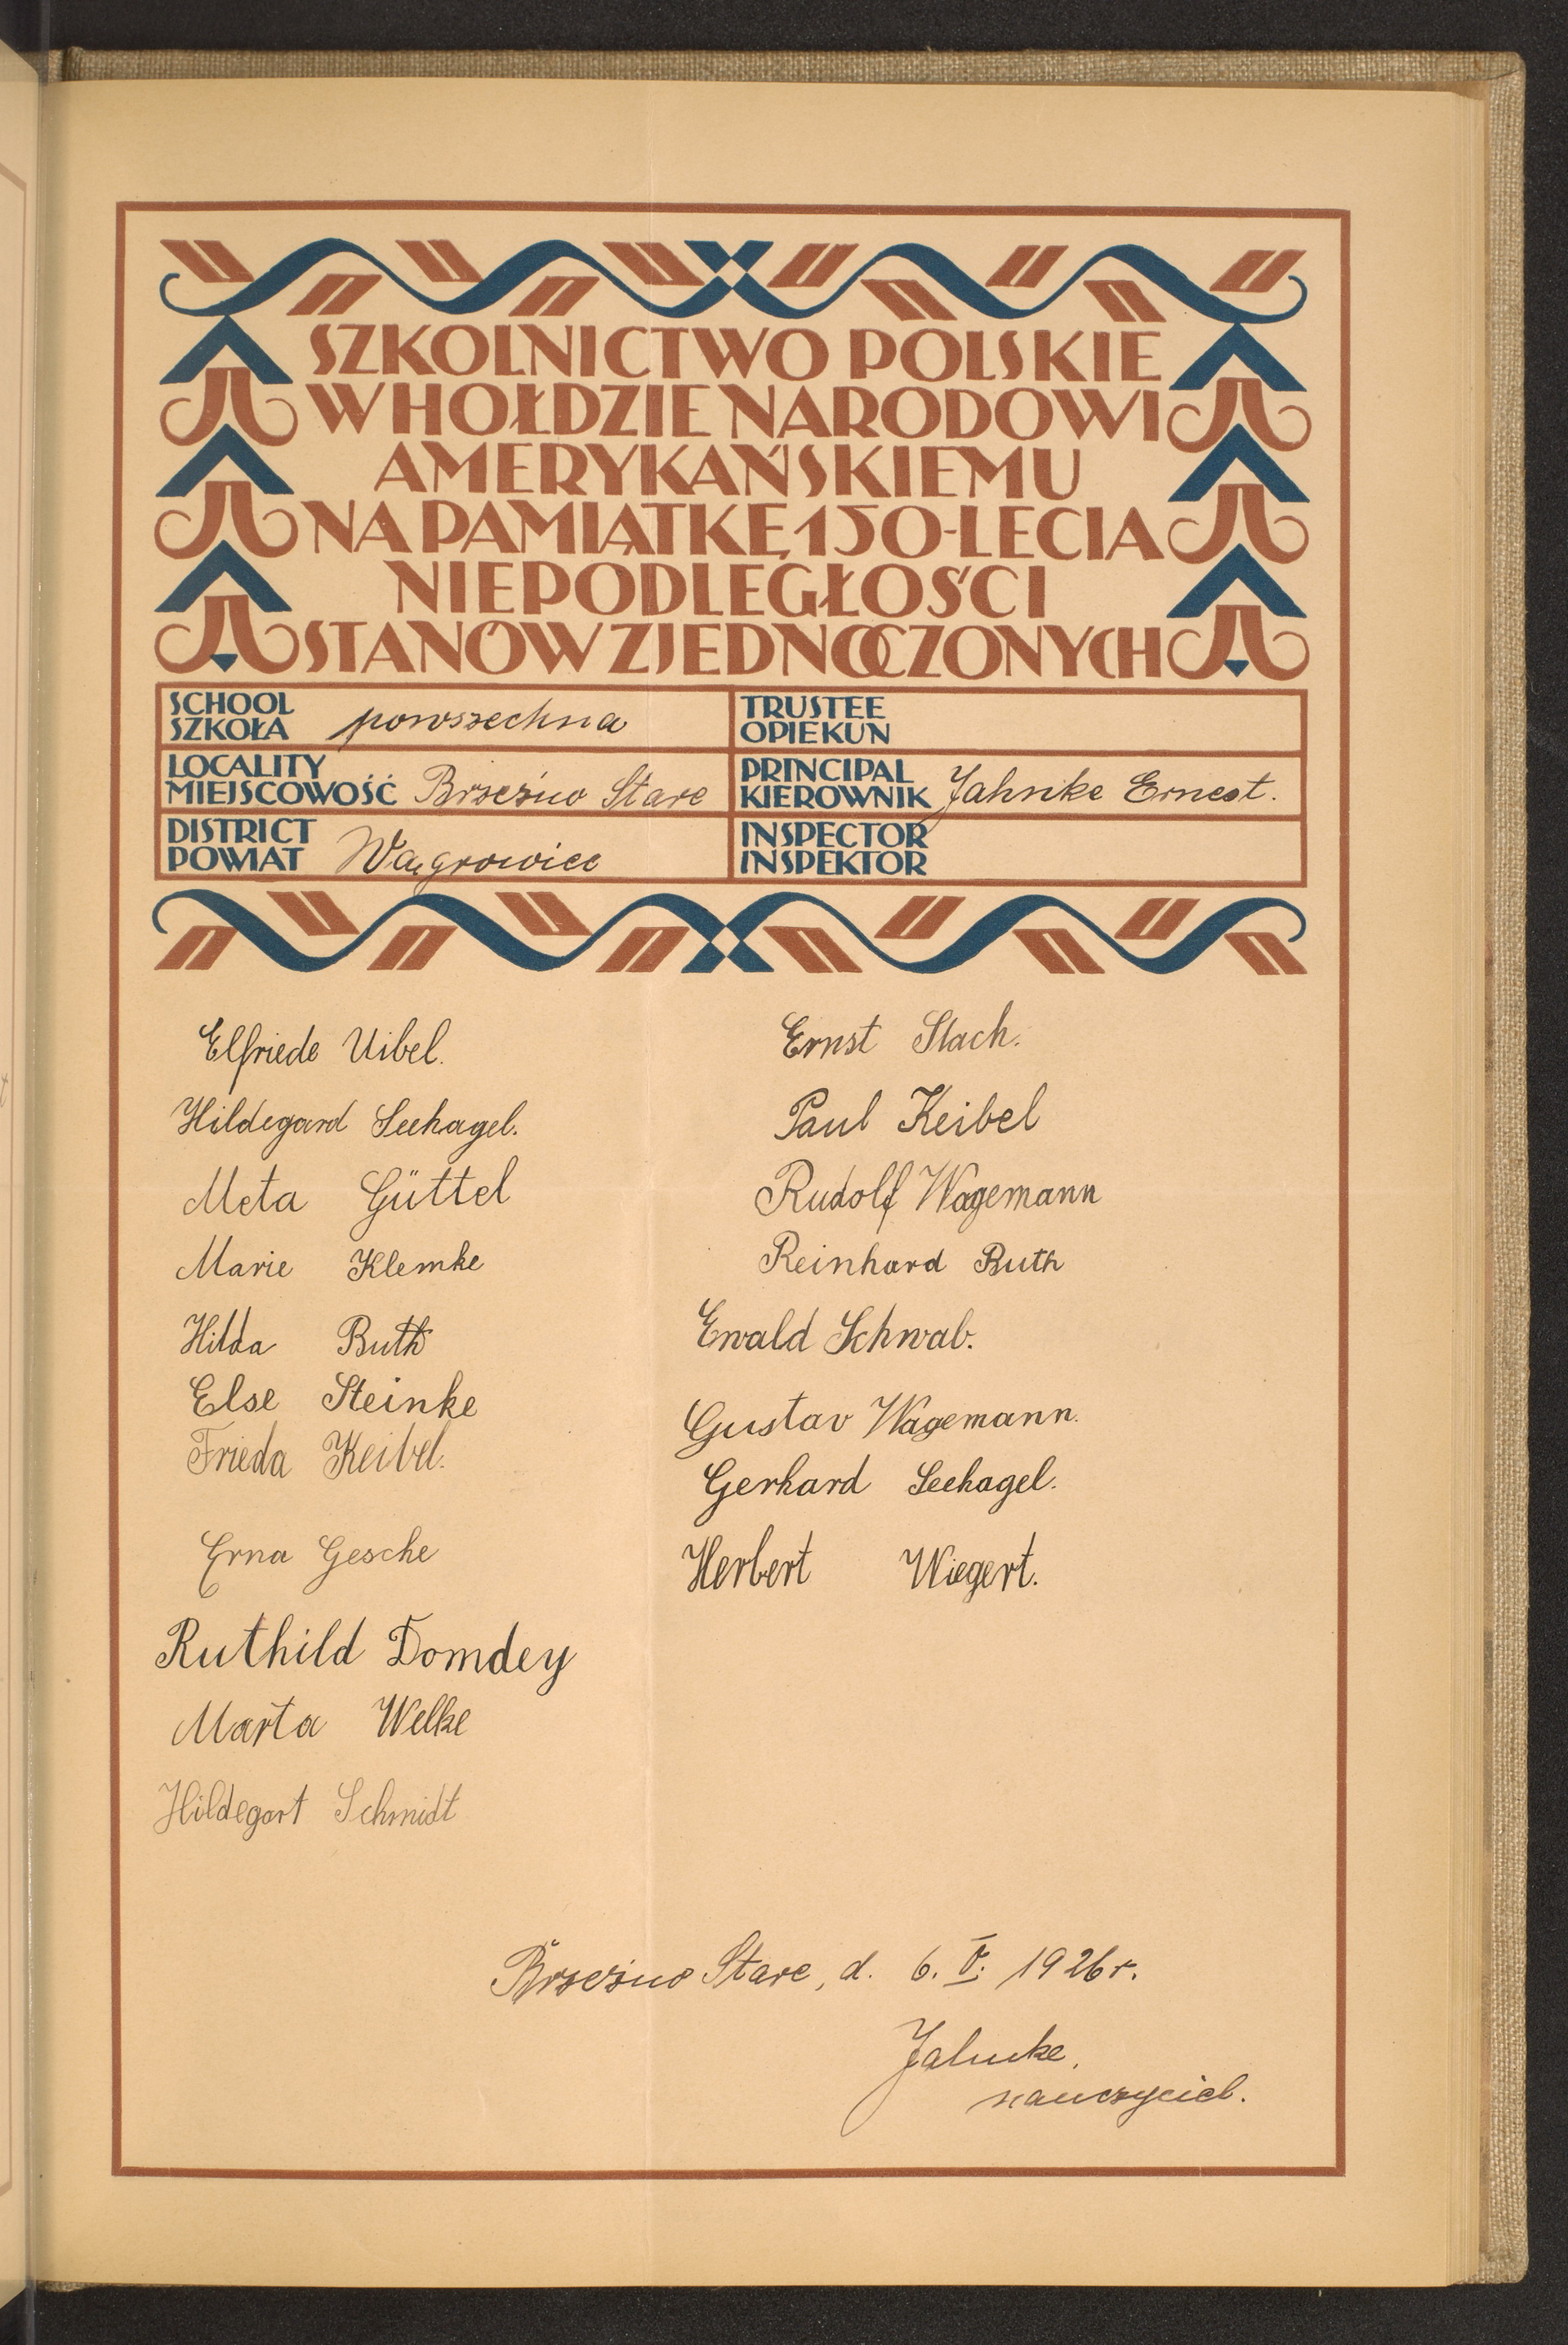 SZKOLNICTWO POLSKIE
W HOŁDZIE NARODOWI
AMERYKAŃSKIEMU
NA PAMIĄTKĘ 150-LECIA
NIEPODLEGŁOŚCI
STANÓW ZJEDNOCZONYCH
SCHOOL
SZKOŁA powszechna
TRUSTEE
OPIEKUN
LOCALITY
MIEJSCOWOŚĆ Brzeźno Stare
PRINCIPAL
KIEROWNIK Jahnke Ernest.
DISTRICT
POWIAT Wągrowiec
INSPECTOR
INSPEKTOR
Elfriede Uibel.
Hildegard Seehagel.
Meta Güttel
Marie Klemke
Hilda Buth
Else Steinke
Frieda Keibel.
Erna Gesche
Ruthild Domdey
Marta Welke
Hildegart Schmidt
Ernst Stach.
Paul Keibel
Rudolf Wagemann
Reinhard Buth
Ewald Schwab.
Gustav Wagemann.
Gerhard Seehagel.
Herbert Wiegert.
Brzeźno Stare, d. 6. V. 1926 r.
Jahnke,
nauczyciel.